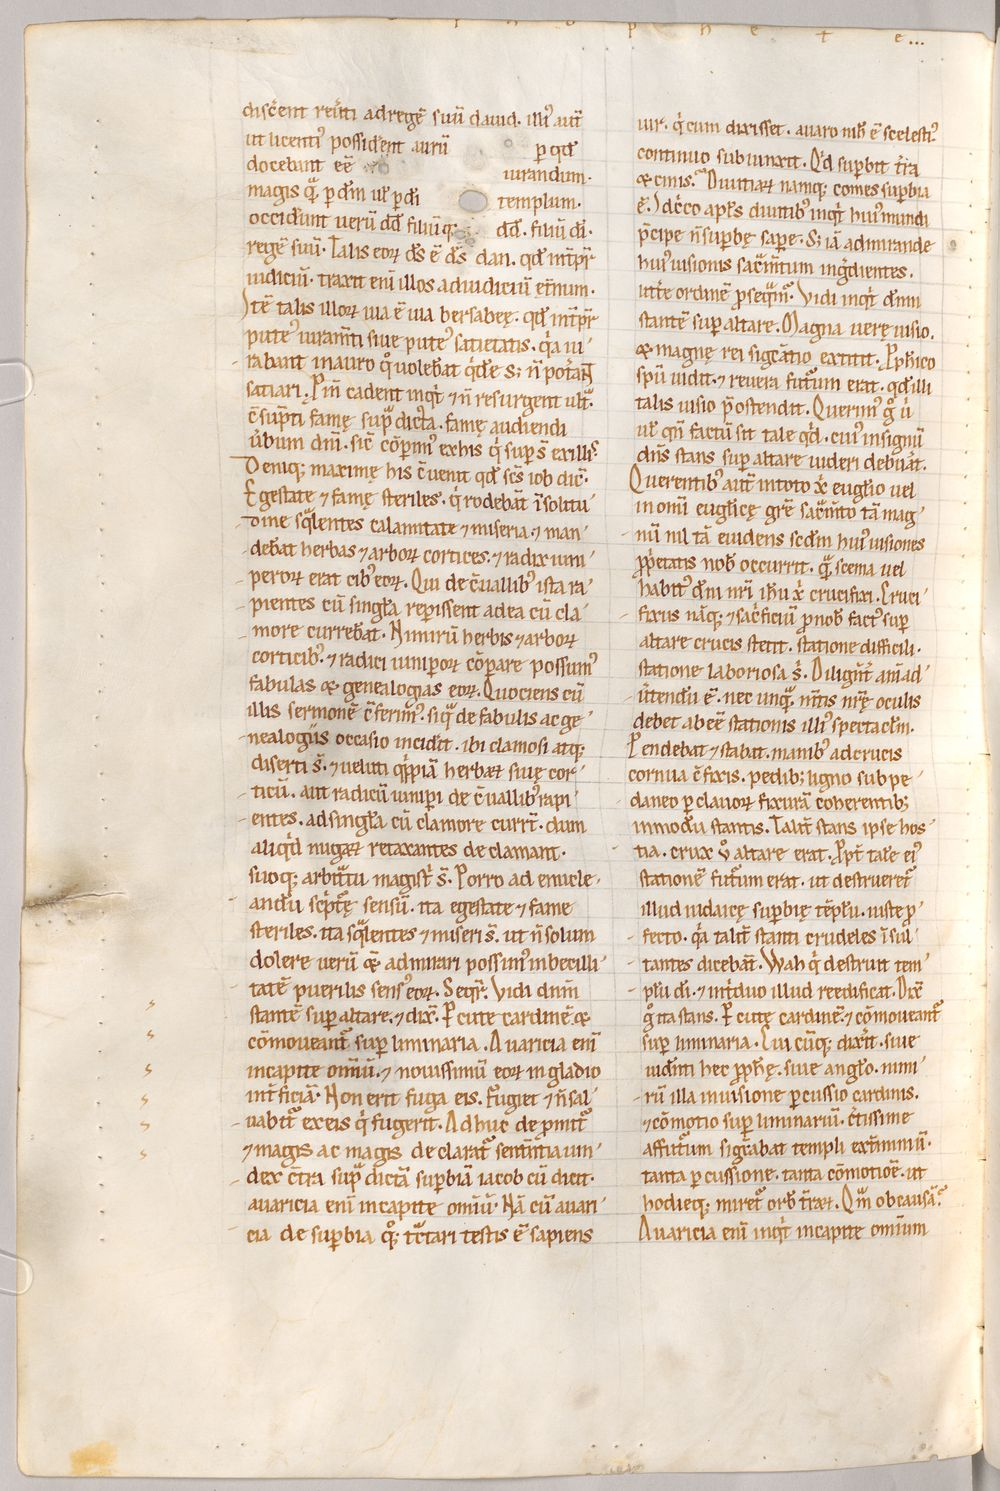 p h e t e...
discēent reūti ad regē suū dauid. illiꝰ aūt
ut licentiꝰ possiderent uirū per qđ
docebant eē iurandum.
magis quā per dm̄ ul' per di
templum.
occiderunt uerū dd filiūq; dd. filiū di.
regē suū. Talis eorꝝ ds̄ ē ds̄ dan. qd īntp̄r
iudiciū. traxit enī illos ad iudiciū et̄num.
Itē talis illorꝝ uia ē uia bersabeę. qd īntp̄r
puteꝰ iuram̄ti siue puteꝰ satietatis. q̄a iu
rabant in auro q̊ uolebāt q̄de s; n̄ poterāt
satiari. Pīn cadent inq̄t ⁊ n̄ resurgent ult̄ᵃ.
c̄sūpti famę sup̄ᵃ dicta. famę audiendi
ūbum dm̄. sic̄ cōperimꝰ ex his q̄ sup̄ s̄ ex illiˢ.
Deniq; maximę his c̄uenit qd sc̄s iob dic̄.
Egestate ⁊ famę steriles. q̄ rodebāt ī solitu
dine squalentes calamitate ⁊ miseria. ⁊ man
debāt herbas ⁊ arborꝝ cortices. ⁊ radix iuni
perorꝝ erat cibꝰ eorꝝ. Qui de c̄uallibꝰ ista ra
pientes cū singl̄a reperissent ad ea cū cla
more currebāt. Nimirū herbis ⁊ arborꝝ
corticibꝰ. ⁊ radici iuniperorꝝ cōparare possumꝰ
fabulas & genealogias eorꝝ. Quociens cū
illis sermonē c̄ferimꝰ. siqᵃ de fabulis ac ge
nealogiis occasio inciderit. ibi clamosi atq;
diserti s̄. ⁊ ueluti qᵃppiā herbarꝝ siuę cor
ticū. aut radicū iuniperi de c̄uallibꝰ rapi
entes. ad singl̄a cū clamore currt̄. dum
aliq̄d nugarꝝ retaxantes declamant.
suoq; arbitᵃtu magistri s̄. Porro ad enucle
andū scptᵃę sensū. ita egestate ⁊ fame
steriles. ita sqᵃlentes ⁊ miseri s̄. ut n̄ solum
dolere uerū & admirari possimꝰ inbecilli
tatē puerilis sensꝰ eorꝝ. Seqr̄. Vidi dnm̄
stantē super altare. ⁊ dix̄. Percute cardinē &
cōmoueant̄ᵃ super liminaria. Auaricia enī
in capite omiū. ⁊ nouissimū eorꝝ in gladio
int̄ficiā. Non erit fuga eis. Fugiet ⁊ n̄ sal
uabit̄ᵃ ex eis q̄ fugerit. Adhuc deprimit̄ᵃ
⁊ magis ac magis declarat̄ᵃ sententia iu
dex c̄tra sup̄ᵃ dictā superbiā iacob cū dicit.
auaricia enī in capite omiū. Nā cū auari
cia de superbia q̊q; tᵃctari testis ē sapiens
uir. q̄ cum dixisset. auaro nih̄ ē scelestiꝰ
continuo subiunxit. Qd superbit tr̄ra
& cinis. Diuitiarꝝ namq; comes superbia
ē. Idc̄co apls̄ diuitibꝰ inqt huiꝰ mundi
p̄cipe n̄ superbę sapere. S; iā admirande
huiꝰ uisionis sacᵃm̄tum ing̊dientes.
utt̄re ordinē p̄seqᵃmᵃ. Vidi inq̄t dnm
stantē super altare. Magna uerę uisio.
& magnę rei sigc̄atio extitit. Pph̄ico
spū uidit. ⁊ reuera futurum erat. qd illi
talis uisio p̄ostendit. Querimꝰ g̊ ū
ul' qn̄ factū sit tale q̄d. cuiꝰ in signū
dn̄s stans super altare uideri debuāt.
Querentibꝰ aut̄ in toto x̄ euglīo uel
in omī euglicę grē sacᵃm̄to tā mag
nū nil tā euidens scdm huiꝰ uisiones
pp̄etatis nob̄ occurrit. quā scema uel
habitꝰ dn̄i nr̄i ih̄u x̄ crucifixi. Cruci
fixus nāq; ⁊ sac̄ficiū p̄ nob̄ factꝰ super
altare crucis stetit. statione difficili.
statione laboriosa s̄. Diligēt̄ anīad
ūtendū ē. nec unqᵃ m̄tis nr̄ę oculis
debet abeē stationis illiꝰ spectaclm̄.
Pendebat ⁊ stabat. manibꝰ ad crucis
cornua c̄fixis. pedib; ligno subpe
daneo per clauorꝝ fixurā coherentib;
in modū stantis. Talit̄ stans ipse hos
tia. crux ů altare erat. Ppt̄ tale eiꝰ
stationē futurum erat. ut destrueret̄ᵃ
illud iudaicę superbię tēplū. iuste p̄
fecto. q̄a talit̄ stanti crudeles ī sul
tantes dicebāt. Wah q̄ destruit tem
plū di. ⁊ in tⁱduo illud reedificat. Dix̄
g̊ ita stans. Percute cardinē. ⁊ cōmoueant̄ᵃ
super liminaria. Cui cūq; dixerit. siue
iuberit hec pphę. siue anglo. nimi
rū illa in uisione percussio cardinis.
⁊ cōmotio super liminariū. c̄tissime
affuturum sigc̄abat templi ext̄miniū.
tanta percussione. tanta cōmotioē. ut
hodieq; miret̄ᵃ orb̄ tr̄arꝝ. Qᵃm ob causā.ᵃ
Auaricia enī inqt in capite omium